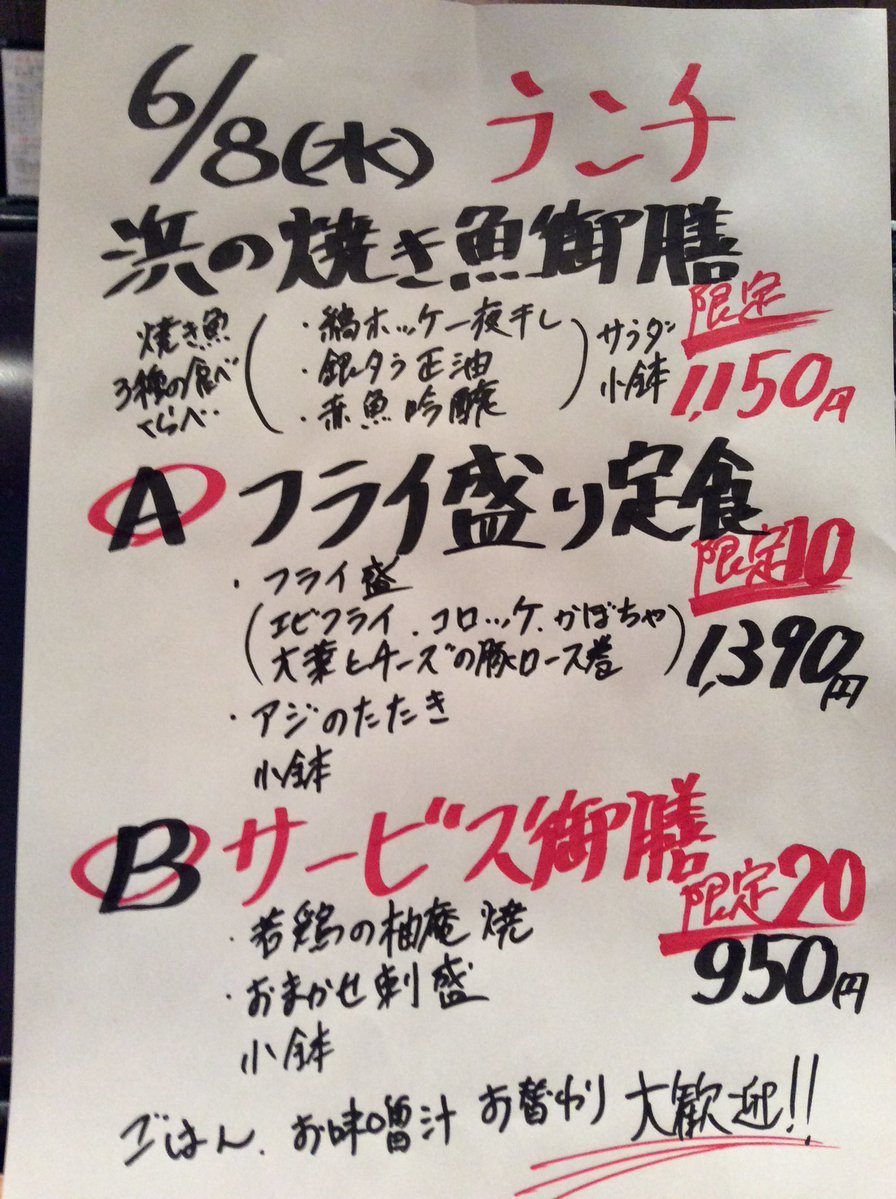 6/8(水) ランチ
浜の焼き魚御膳
限定
1,150円
焼き魚
3種の食べ
くらべ
・縞ホッケ一夜干し
・銀タラ正油
・赤魚吟醸
サラダ
小鉢
A フライ盛り定食
限定10
1,390円
・フライ盛
(エビフライ、コロッケ、かぼちゃ
大葉とチーズの豚ロース巻)
・アジのたたき
小鉢
B サービス御膳
限定20
950円
・若鶏の柚庵焼
・おまかせ刺盛
小鉢
ごはん、お味噌汁 お替わり 大歓迎!!